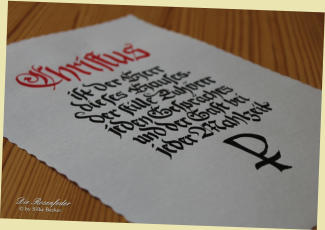 Christus
ist der Herr
dieses Hauses
der stille Zuhörer
jeden Gespräches
und der Gast bei
jeder Mahlzeit
Die Rosenfeder
© by Silke Becker